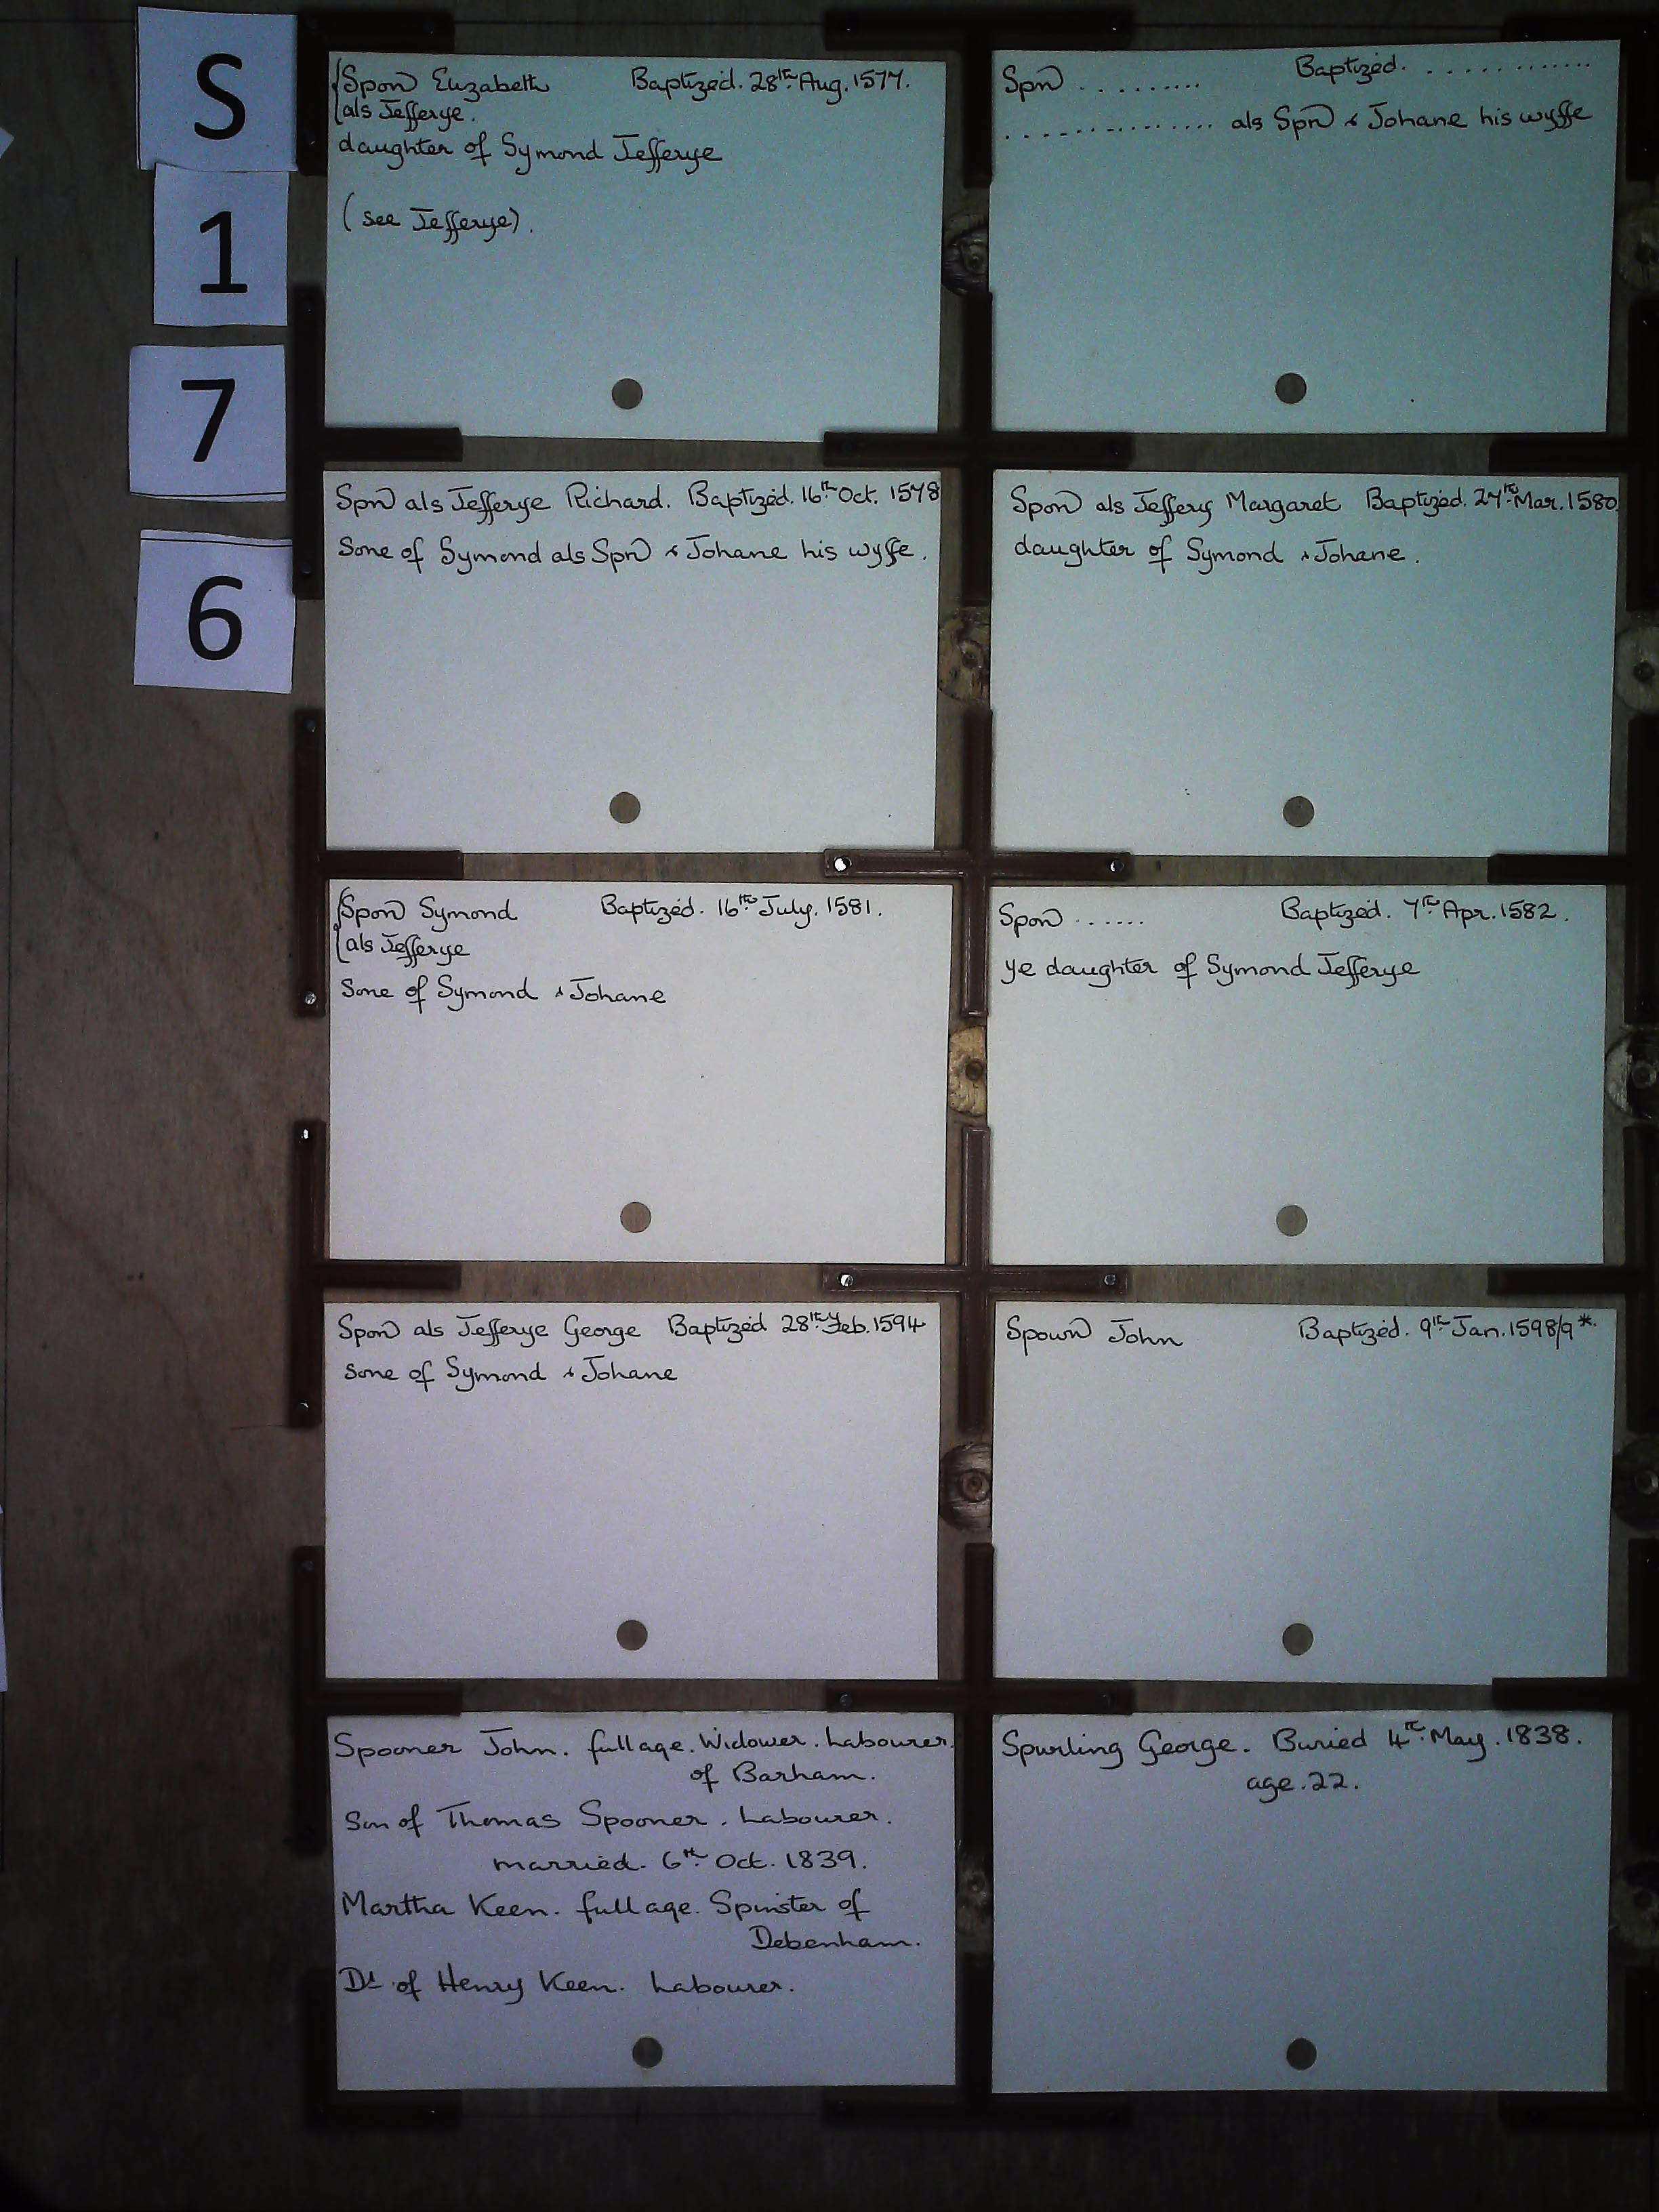 S
1
7
6
Spon Elizabeth Baptized. 28th Aug. 1577.
als Jefferye.
daughter of Symond Jefferye
(see Jefferye).
Spn .......... Baptized. ............
............... als Spn & Johane his wyffe
Spn als Jefferye Richard. Baptized. 16th Oct. 1578
Sone of Symond als Spn & Johane his wyffe.
Spon als Jeffery Margaret Baptized. 27th Mar. 1580.
daughter of Symond & Johane.
Spon Symond Baptized. 16th July. 1581.
als Jefferye
Sone of Symond & Johane
Spon ...... Baptized. 7th Apr. 1582.
ye daughter of Symond Jefferye
Spon als Jefferye George Baptized 28th Feb. 1594
Sone of Symond & Johane
Spown John Baptized. 9th Jan. 1598/9*.
Spooner John. full age. Widower. Labourer.
of Barham.
Son of Thomas Spooner. Labourer.
married. 6th Oct. 1839.
Martha Keen. full age. Spinster of
Debenham.
Dr of Henry Keen. Labourer.
Spurling George. Buried 4th May. 1838.
age. 22.